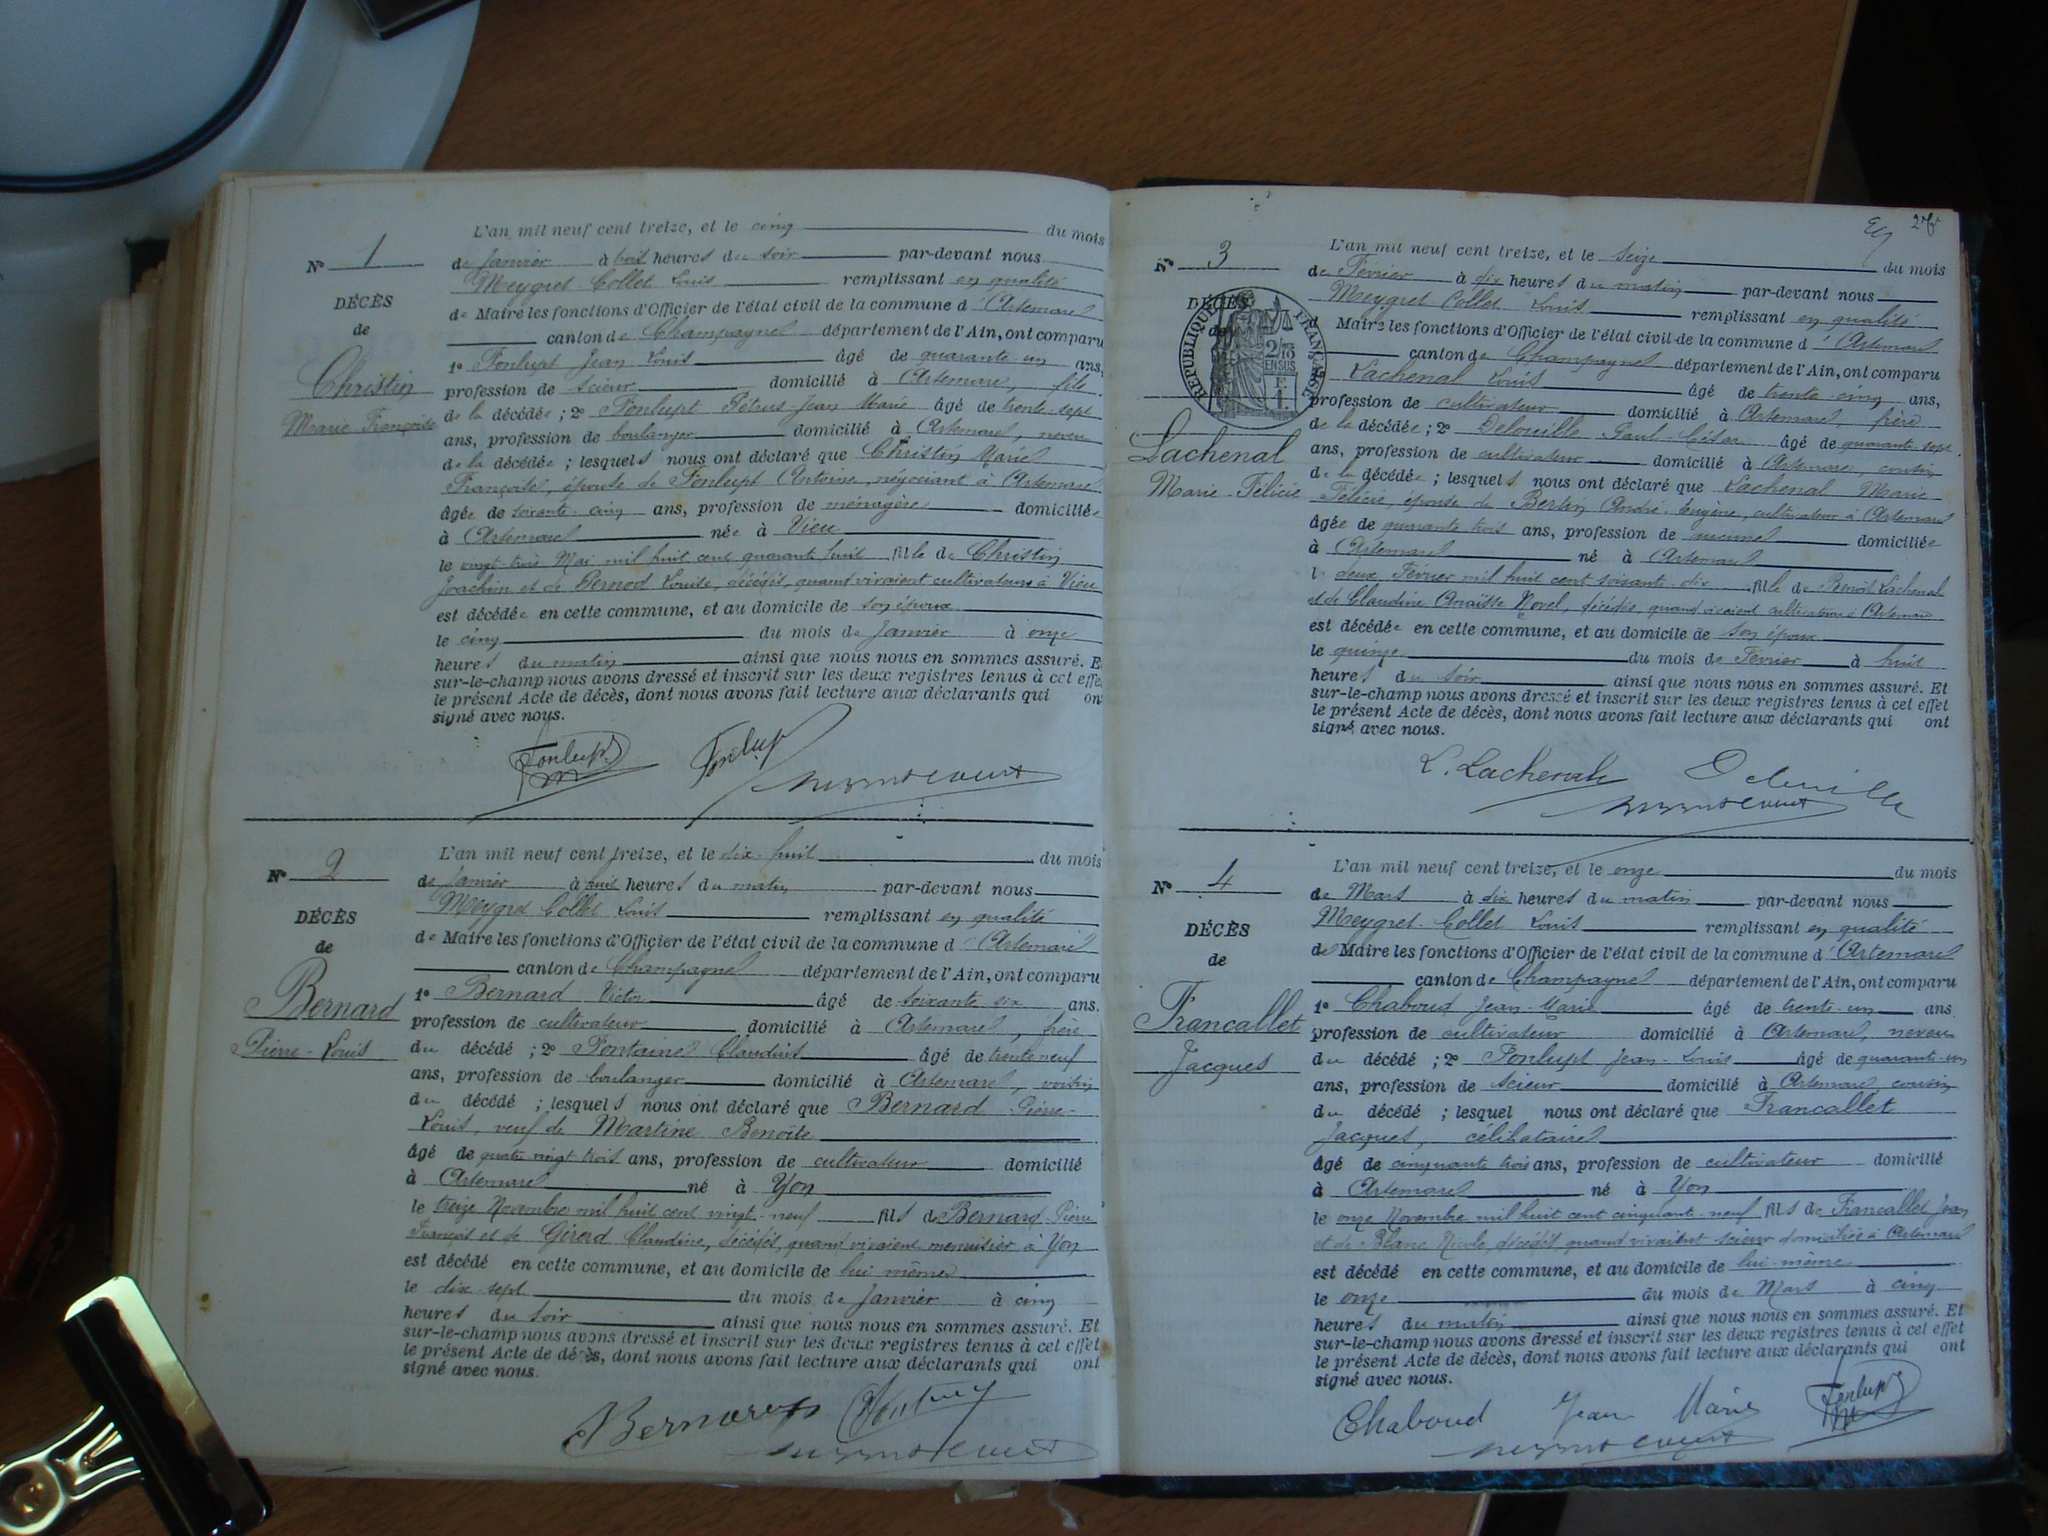 L'an mil neuf cent treize, et le cinq du mois
N° 1
de Janvier à trois heures du soir par-devant nous
Meygret Collet Louis remplissant en qualité
DÉCÈS
de Maire les fonctions d'Officier de l'état civil de la commune d'Artemare
de
canton de Champagne département de l'Ain, ont comparu
1° Fonlupt Jean Louis âgé de quarante-un ans,
Christin
profession de scieur domicilié à Artemare, fils
Marie Françoise
de la décédée ; 2° Fonlupt Pétrus Jean Marie âgé de trente-sept
ans, profession de boulanger domicilié à Artemare, neveu
de la décédée ; lesquels nous ont déclaré que Christin Marie
Françoise, épouse de Fonlupt Antoine, négociant à Artemare
âgée de soixante-cinq ans, profession de ménagère domiciliée
à Artemare née à Vieu
le vingt-trois Mai mil huit cent quarante huit fille de Christin
Joachim et de Bernod Louise, décédés, quand vivaient cultivateurs à Vieu
est décédée en cette commune, et au domicile de son époux
le cinq du mois de Janvier à onze
heures du matin ainsi que nous nous en sommes assuré. E
sur-le-champ nous avons dressé et inscrit sur les deux registres tenus à cet effe
le présent Acte de décès, dont nous avons fait lecture aux déclarants qui on
signé avec nous.
Fonlupt Fonlupt
L'an mil neuf cent treize, et le dix-huit du mois
N° 2
de Janvier à huit heures du matin par-devant nous
Meygret Collet Louis remplissant en qualité
DÉCÈS
de Maire les fonctions d'Officier de l'état civil de la commune d'Artemare
de
canton de Champagne département de l'Ain, ont comparu
Bernard
1° Bernard Victor âgé de soixante six ans.
profession de cultivateur domicilié à Artemare, frère
Pierre-Louis
du décédé ; 2° Fontaine Claudius âgé de trente neuf
ans, profession de boulanger domicilié à Artemare, voisin
du décédé ; lesquels nous ont déclaré que Bernard Pierre-
Louis, veuf de Martine Benoîte
âgé de quatre vingt trois ans, profession de cultivateur domicilié
à Artemare né à Yon
le treize Novembre mil huit cent vingt-neuf fils de Bernard Pierre
François et de Girerd Claudine, décédés, quand vivaient menuisier à Yon
est décédé en cette commune, et au domicile de lui même
le dix-sept du mois de Janvier à cinq
heures du soir ainsi que nous nous en sommes assuré. Et
sur-le-champ nous avons dressé et inscrit sur les deux registres tenus à cet effet
le présent Acte de décès, dont nous avons fait lecture aux déclarants qui ont
signé avec nous.
Bernard
L'an mil neuf cent treize, et le seize du mois
N° 3
de Février à dix heures du matin par-devant nous
Meygret Collet Louis remplissant en qualité
DÉCÈS
de Maire les fonctions d'Officier de l'état civil de la commune d'Artemare
de
RÉPUBLIQUE FRANÇAISE
2/10 EN SUS
canton de Champagne département de l'Ain, ont comparu
Lachenal Louis âgé de trente-cinq ans,
profession de cultivateur domicilié à Artemare, frère
Lachenal
de la décédée ; 2° Delouille Paul César âgé de quarante-sept
Marie-Félicie
ans, profession de cultivateur domicilié à Artemare, cousin
de la décédée ; lesquels nous ont déclaré que Lachenal Marie
Félicie, épouse de Bertin André-Eugène, cultivateur à Artemare
âgée de quarante trois ans, profession de domiciliée
à Artemare né à Artemare
le deux Février mil huit cent soixante-dix fille de Benoît Lachenal
et de Claudine Novel, décédés, quand vivaient cultivateurs à Artemare
est décédée en cette commune, et au domicile de son époux
le quinze du mois de Février à huit
heures du soir ainsi que nous nous en sommes assuré. Et
sur-le-champ nous avons dressé et inscrit sur les deux registres tenus à cet effet
le présent Acte de décès, dont nous avons fait lecture aux déclarants qui ont
signé avec nous.
L. Lachenal Delouille
L'an mil neuf cent treize, et le onze du mois
N° 4
de Mars à dix heures du matin par-devant nous
Meygret-Collet Louis remplissant en qualité
DÉCÈS
de Maire les fonctions d'Officier de l'état civil de la commune d'Artemare
de
canton de Champagne département de l'Ain, ont comparu
Francallet
1° Chaboud Jean-Marie âgé de trente-un ans.
profession de cultivateur domicilié à Artemare, neveu
Jacques
du décédé ; 2° Fonlupt Jean-Louis âgé de quarante-un
ans, profession de scieur domicilié à Artemare, cousin
du décédé ; lesquel nous ont déclaré que Francallet
Jacques, célibataire
âgé de cinquante trois ans, profession de cultivateur domicilié
à Artemare né à Yon
le onze Novembre mil huit cent cinquante-neuf fils de Francallet Jean
et de Blanc Nicole, décédés, quand vivaient scieur domiciliés à Artemare
est décédé en cette commune, et au domicile de lui-même
le onze du mois de Mars à cinq
heures du matin ainsi que nous nous en sommes assuré. Et
sur-le-champ nous avons dressé et inscrit sur les deux registres tenus à cet effet
le présent Acte de décès, dont nous avons fait lecture aux déclarants qui ont
signé avec nous.
Chaboud Jean Marie Fonlupt